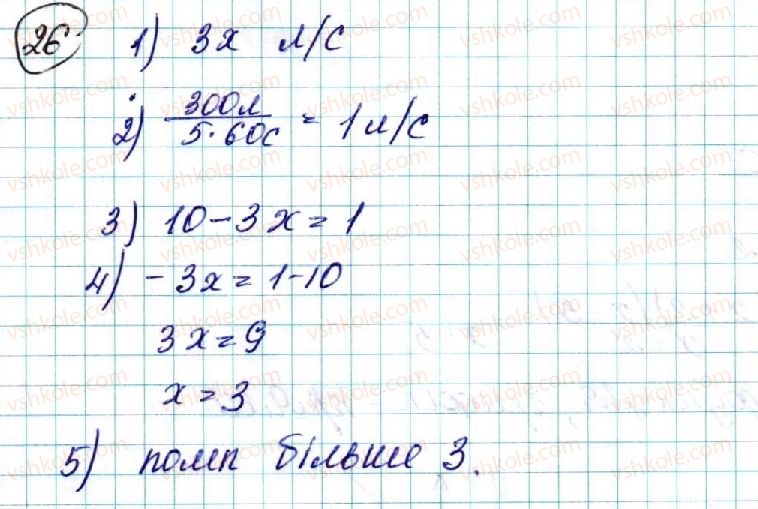 26
1) 3x л/с
2) 300л / 5·60с = 1 л/с
3) 10 - 3x = 1
4) -3x = 1-10
3x = 9
x = 3
5) помп більше 3.
vshkole.com